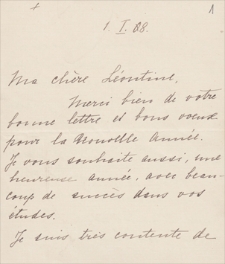 1. I. 88.
Ma chère Léontine,
Merci bien de votre
bonne lettre et bons voeux
pour la Nouvelle Année.
Je vous souhaite aussi, une
heureuse année, avec beau-
coup de succès dans vos
études.
Je suis très contente de